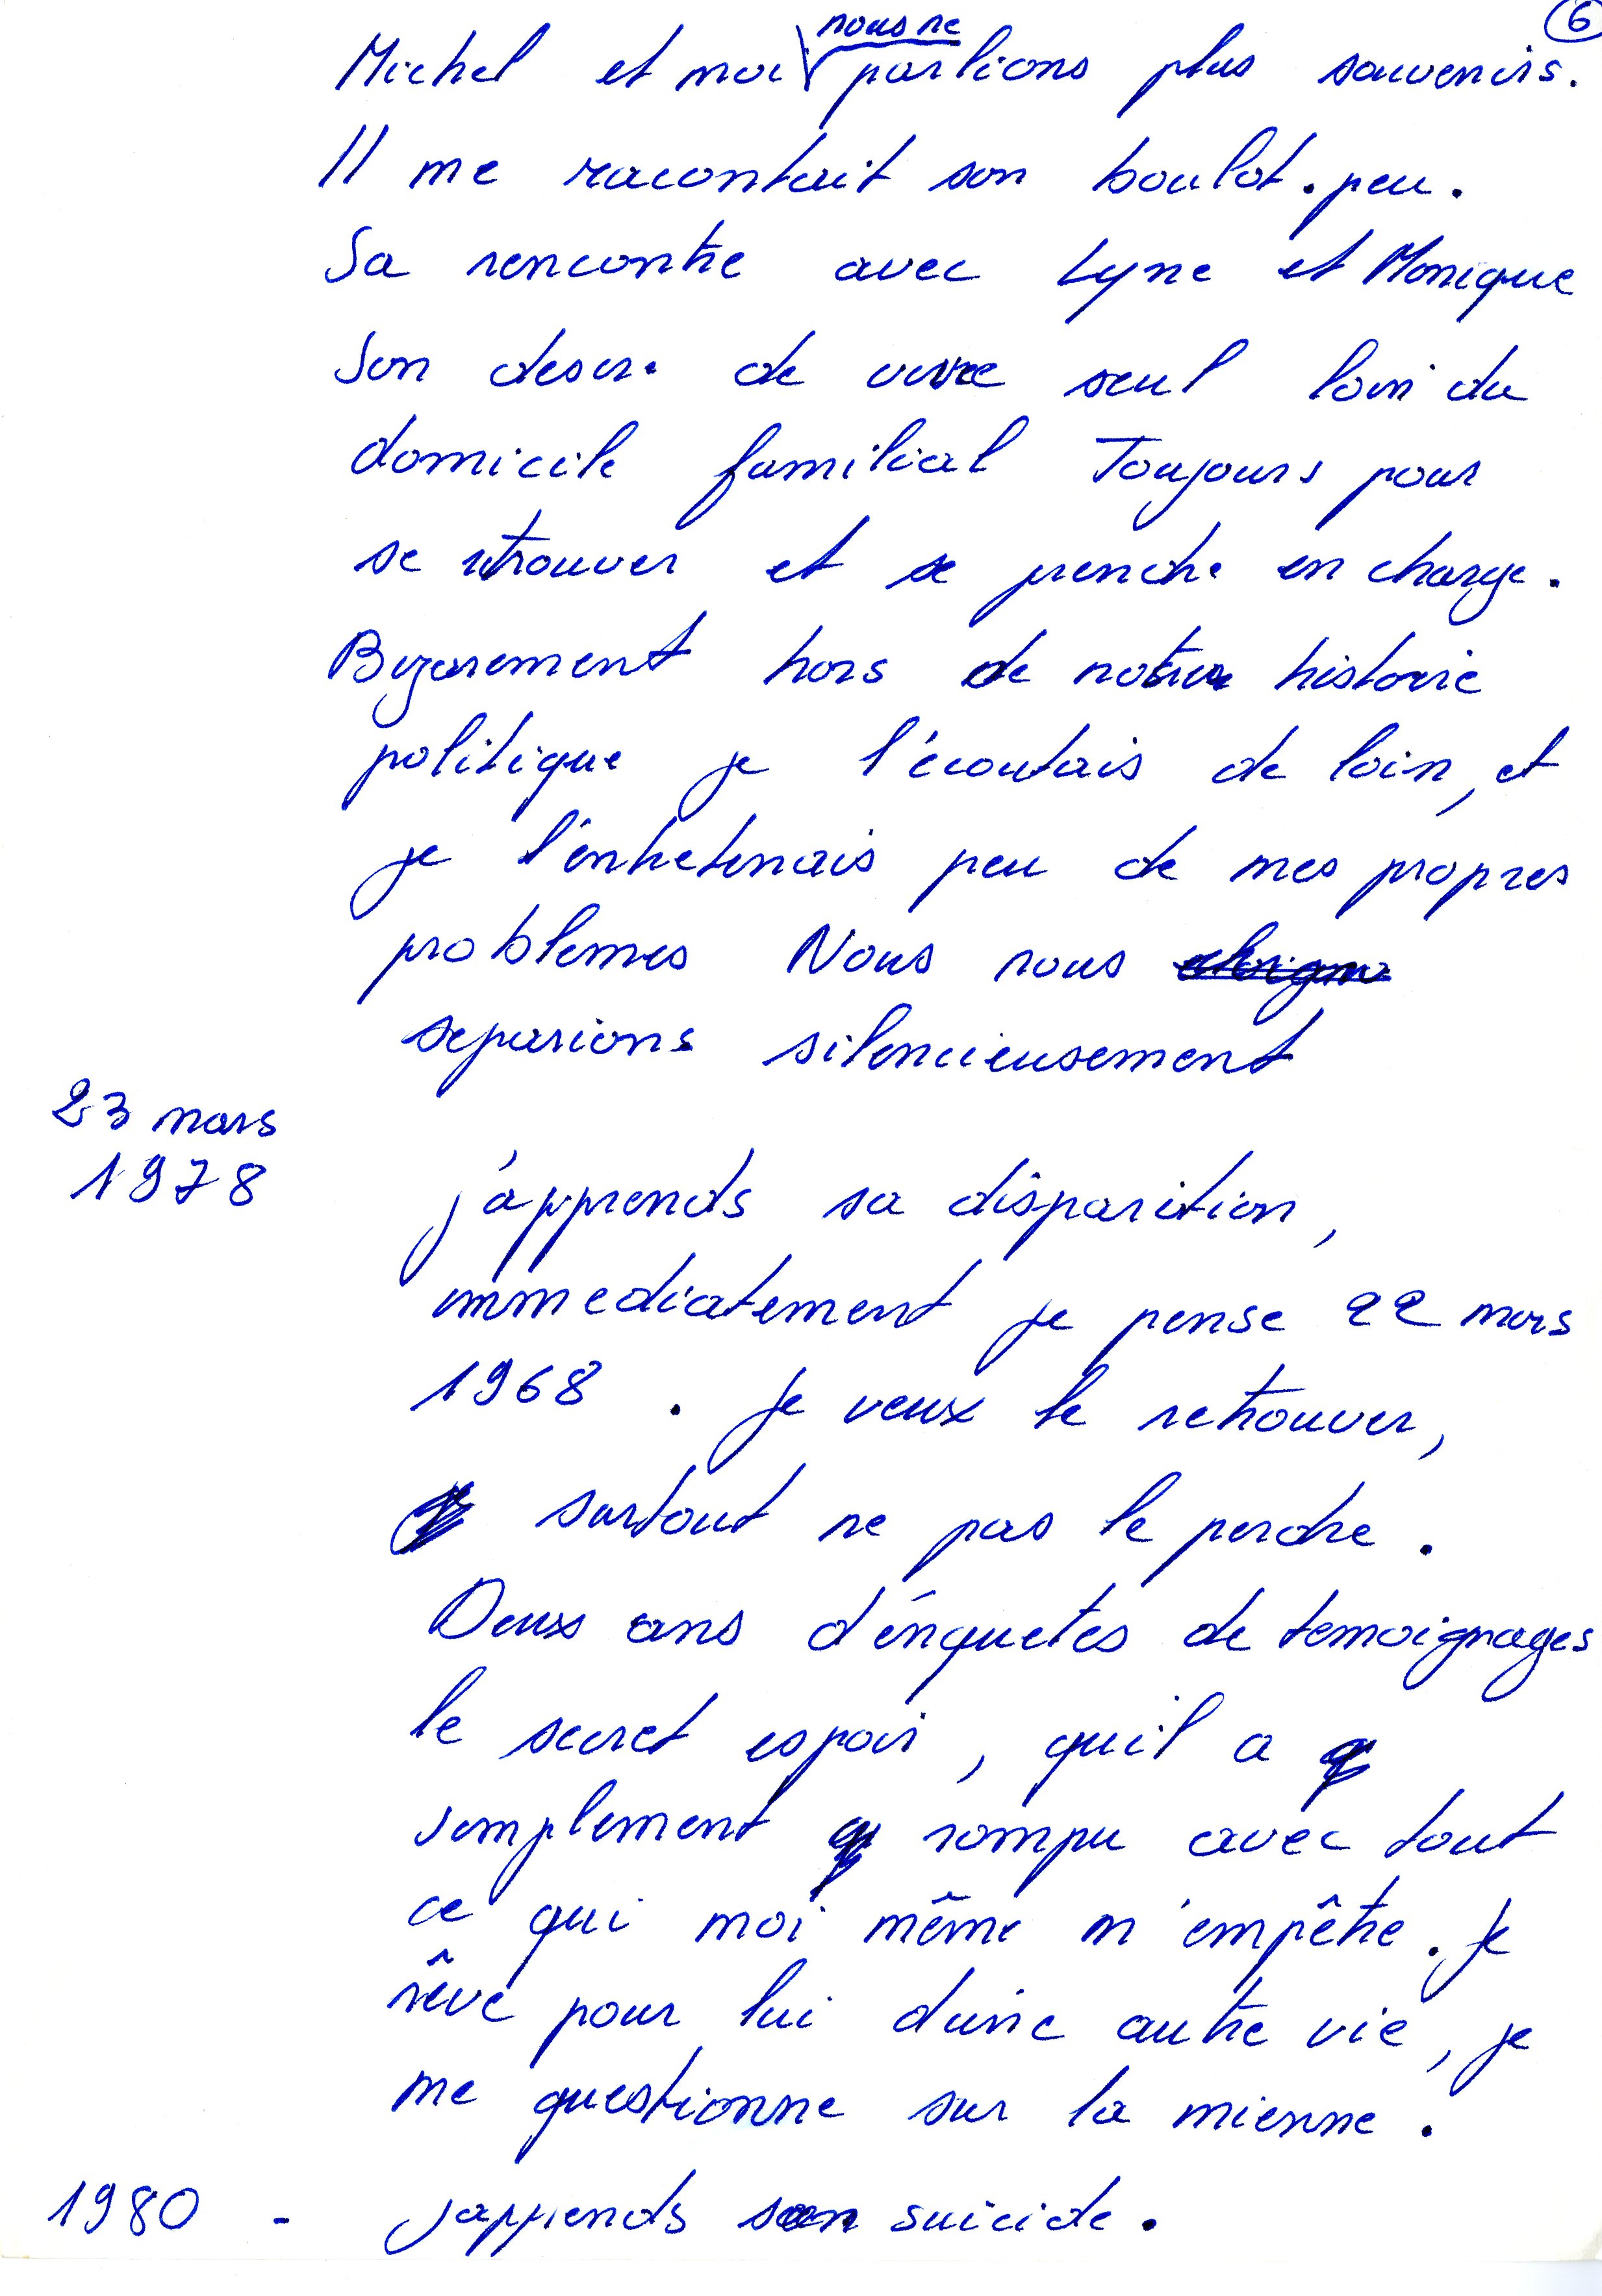 6
nous ne
Michel et moi parlions plus souvenirs.
Il me racontait son boulot. peu.
Sa rencontre avec Lyne et Monique
Son desir de vivre seul loin du
domicile familial Toujours pour
se retrouver et se prendre en charge.
Bizarement hors de notre histoire
politique je l'écoutais de loin, et
je l'entretenais peu de mes propres
problemes Nous nous
separions silencieusement
23 mars
1978
j'apprends sa disparition,
immediatement je pense 22 mars
1968. Je veux le retrouver,
surtout ne pas le perdre.
Deux ans d'enquetes de temoignages
le secret espoir, quil a
simplement rompu avec tout
ce qui moi même m'empêtre. Je
rêve pour lui dune autre vie, je
me questionne sur la mienne.
1980 - japprends son suicide.